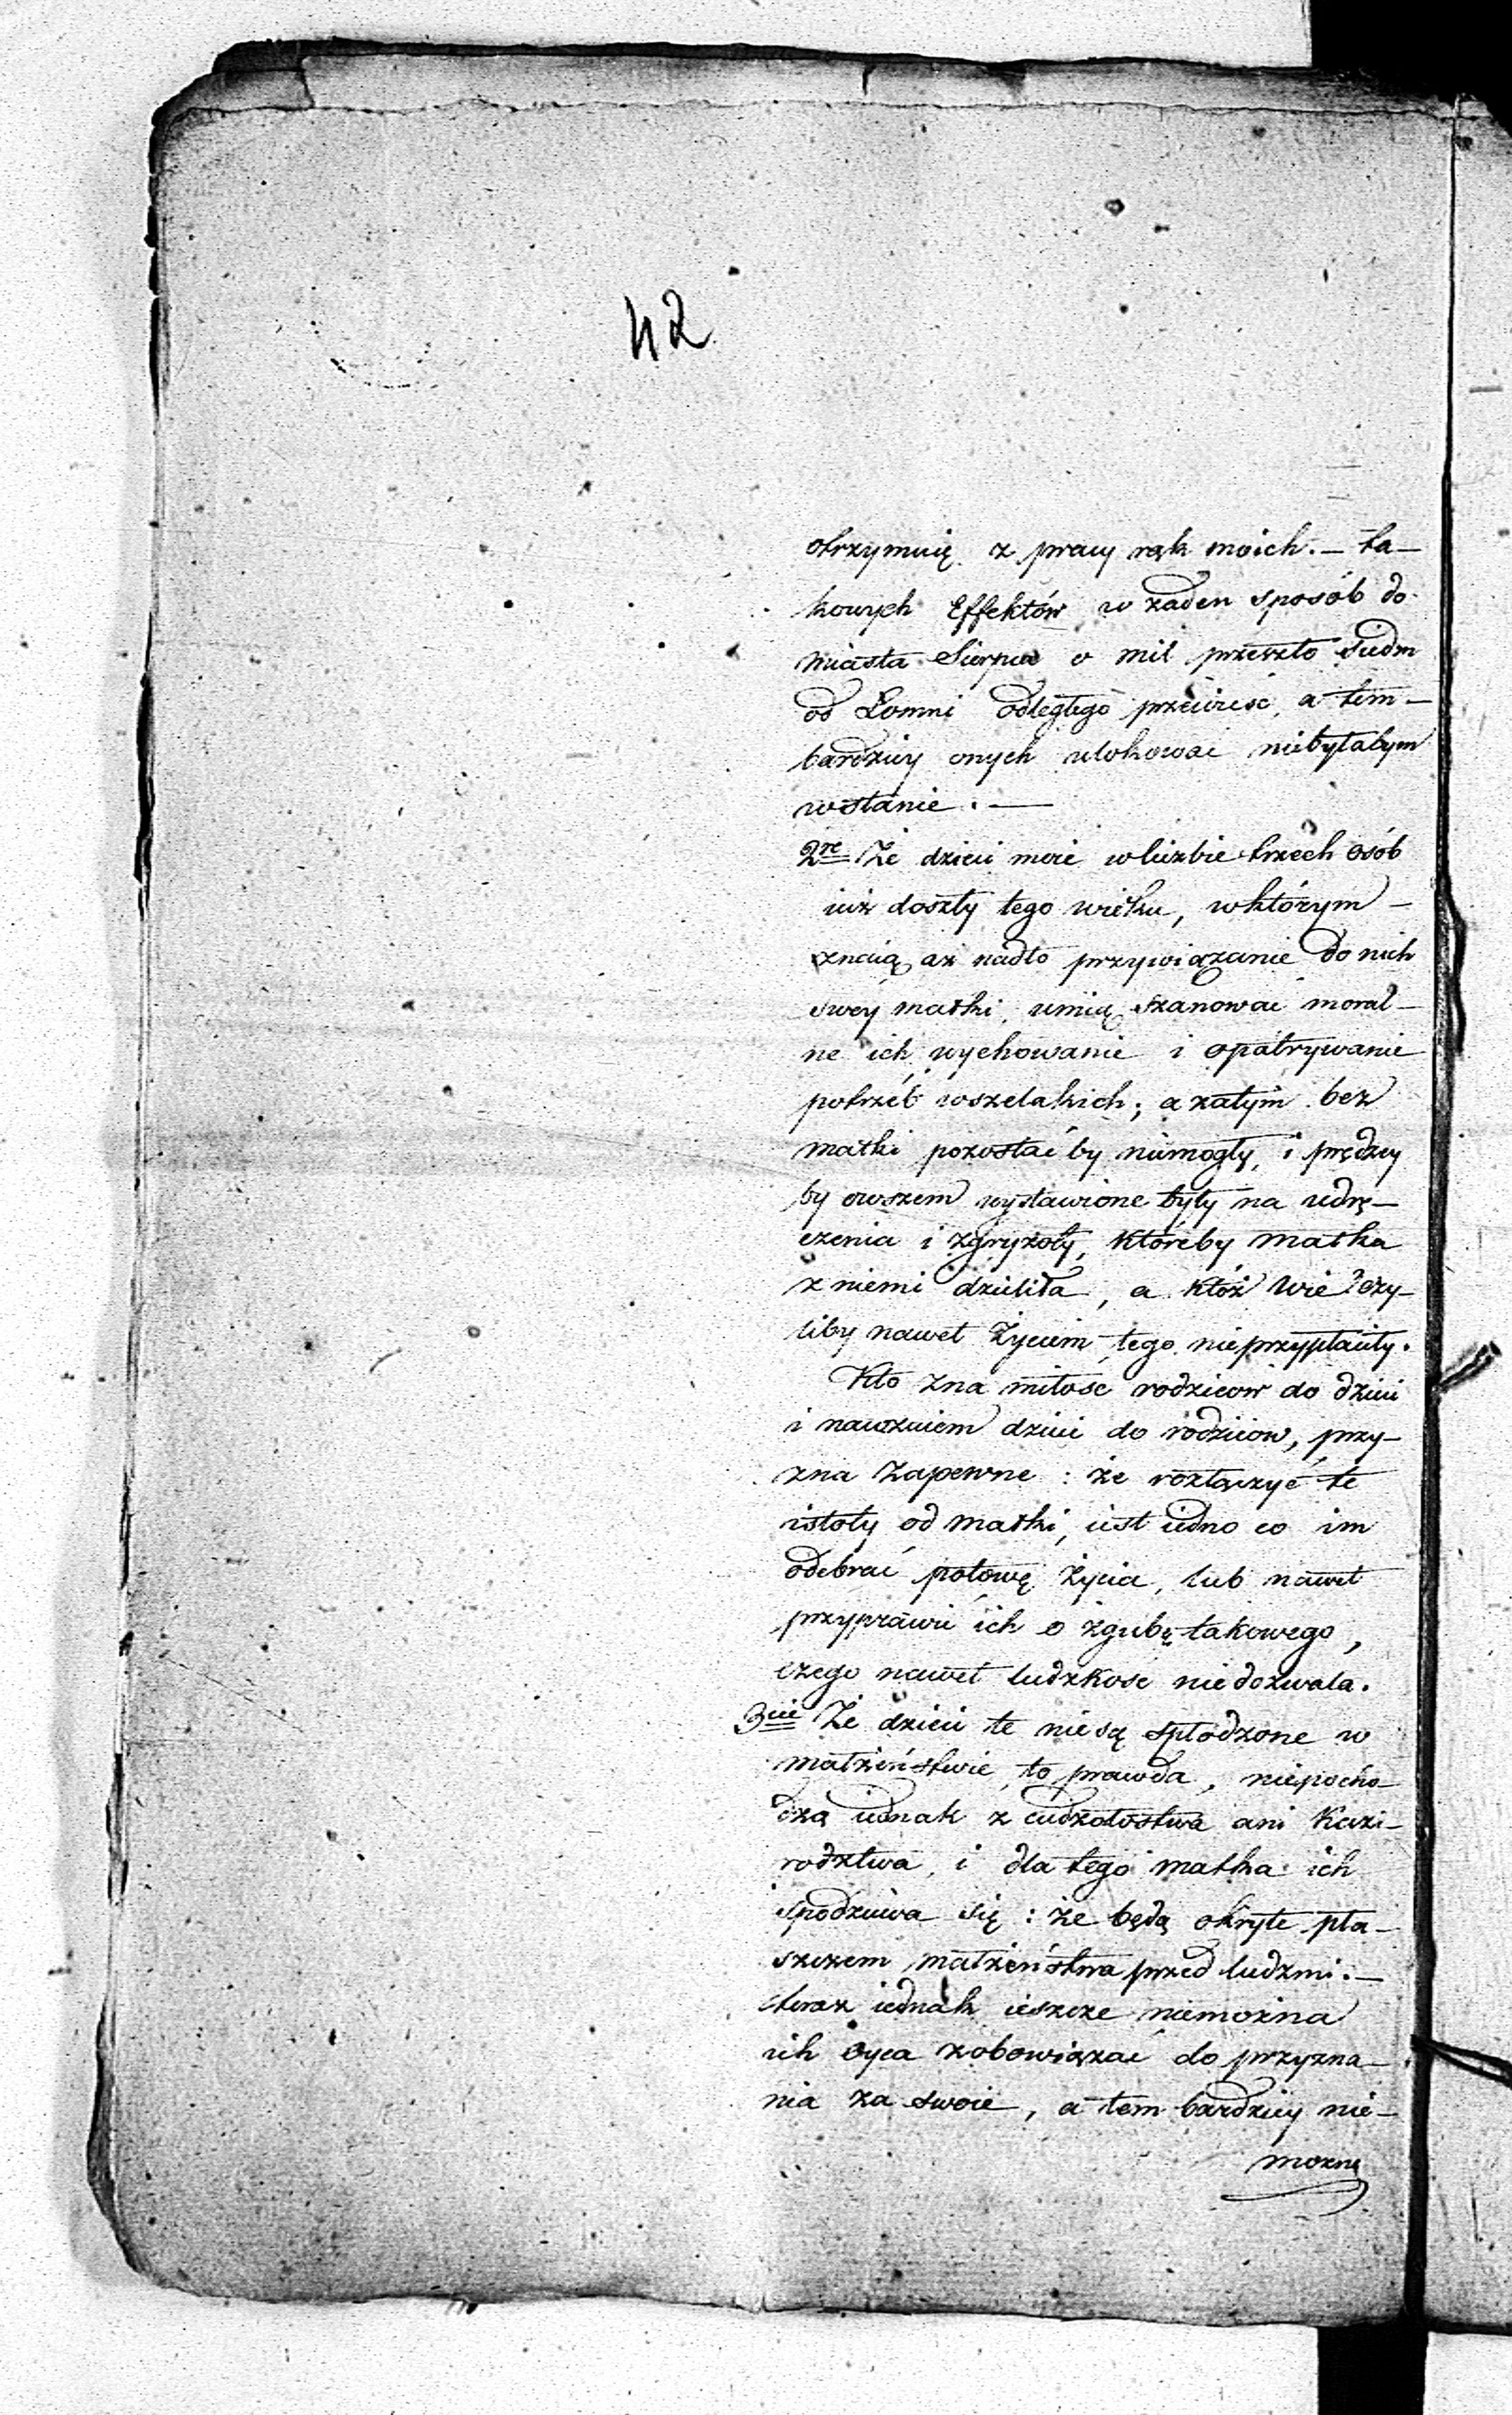 42
otrzymuię z pracy rąk moich. — ta—
kowych Effektów w żaden sposób do
miasta Sierpca o mil przeszło siedm
od Łomni odległego przewieść, a tem—
bardziey onych ulokować niebyłabym
wstanie. —
2re Że dzieci moie w liczbie trzech osób
iuż doszły tego wieku, wktórym —
znaią aż nadto przywiązanie do nich
swey matki, umią szanować moral—
ne ich wychowanie i opatrywanie
potrzéb wszelakich; a zatym bez
matki pozostać by niemogły, i prędzey
by owszem wystawione były na udrę—
czenia i zgryzoty, któreby matka
z niemi dzieliła, a któż wie? czy—
liby nawet życiem tego nieprzypłaciły.
Kto zna miłość rodziców do dzieci
i nawzaiem dzieci do rodziców, przy—
zna zapewne: że rozłączyć te
istoty od matki, iest iedno co im
odebrać połowę życia, lub nawet
przyprawić ich o zgubę takowego,
czego nawet ludzkość niedozwala.
3cie Że dzieci te nie są spłodzone w
małżeństwie, to prawda, niepocho—
dzą iednak z cudzołostwa ani Kazi—
rodztwa, i dla tego matka ich
spodziewa się: że będą okryte pła—
szczem małżeństwa przed ludzmi. —
teraz iednak ieszcze niemożna
ich oyca zobowiązać do przyzna—
nia za swoie, a tem bardziey nie—
można